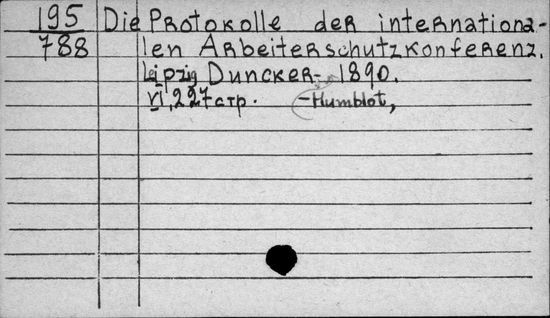 195 Die Protokolle der internationa-
788 len Arbeiterschutzkonferenz.
Leipzig Duncker- 1890.
VI, 227 стр. -Humblot,